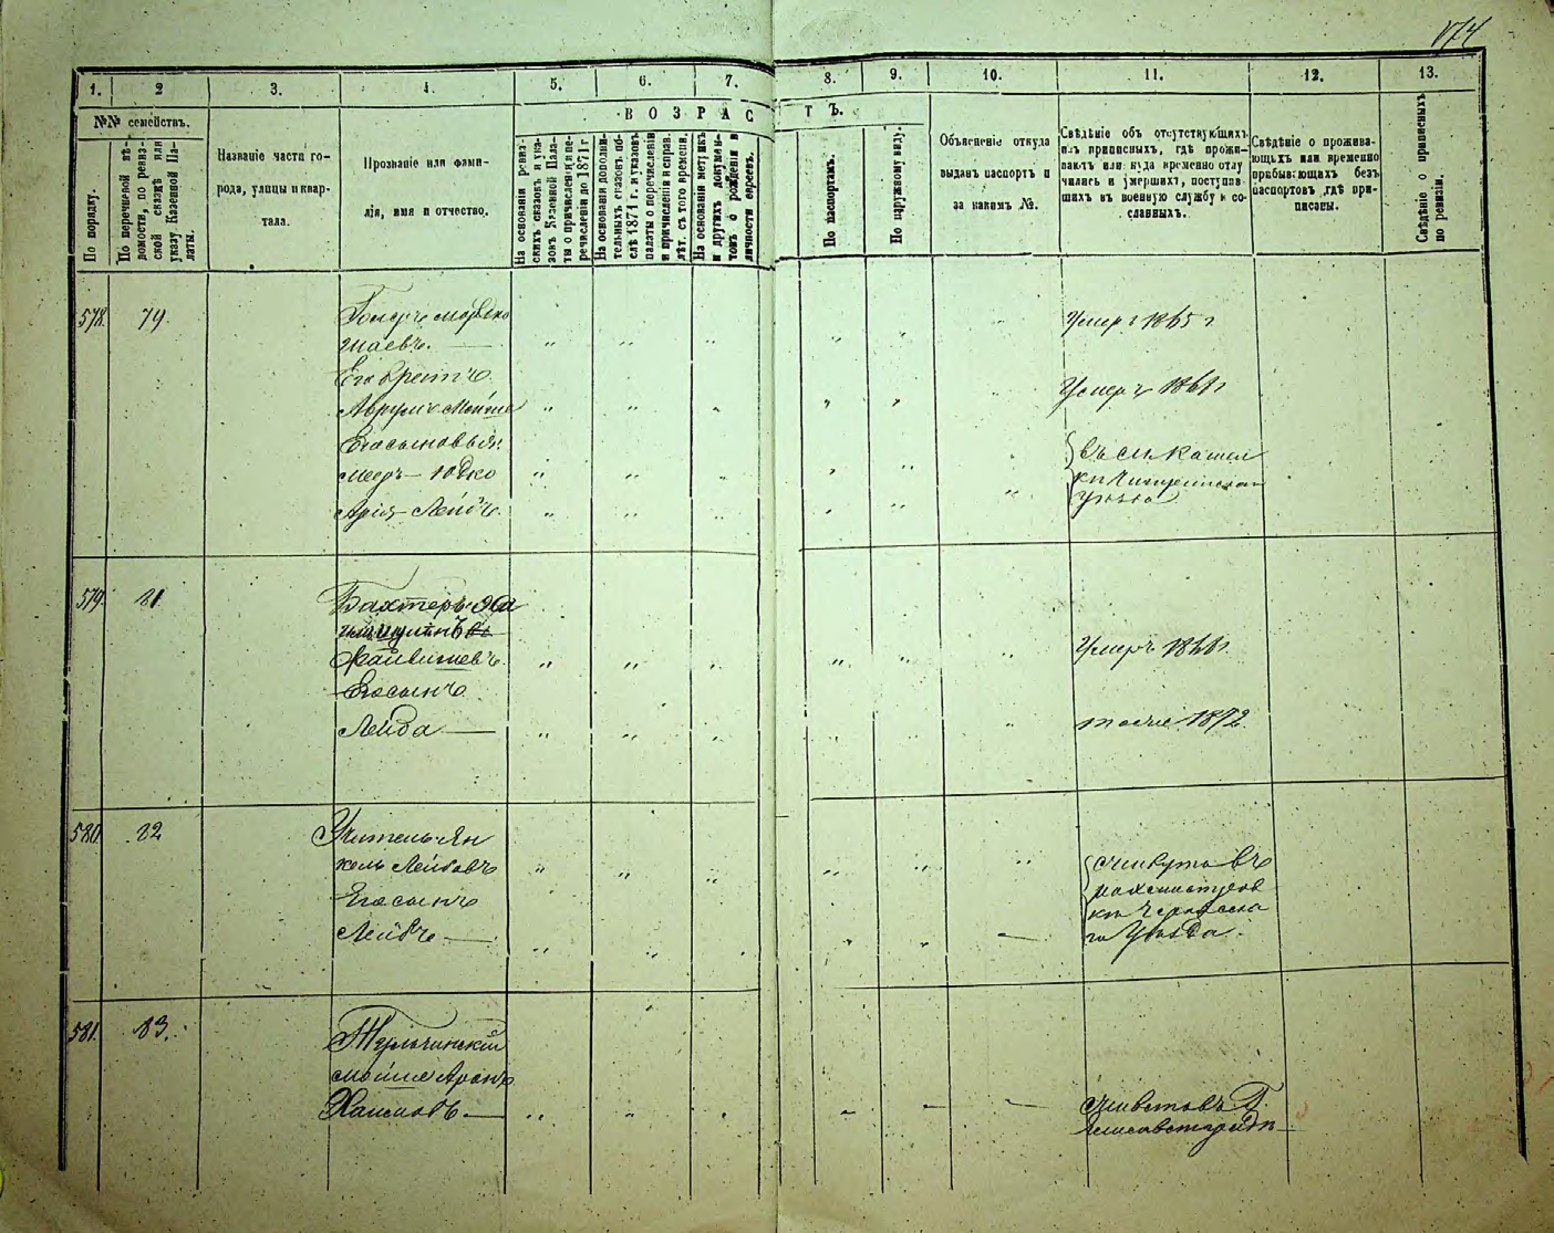 174
1. 2 3. 4. 5. 6. 7. 8. 9. 10. 11. 12. 13.
№№ семействъ.
По порядку.
По перечневой вѣ-
домости, по ревиз-
ской сказкѣ или
указу Казенной Па-
латы.
Названіе части го-
рода, улицы и квар-
тала.
Прозваніе или фами-
лія, имя и отчество.
ВОЗРАСТЪ.
На основаніи ревиз-
скихъ сказокъ и ука-
зовъ Казенной Пала-
ты о причисленіи и пе-
речисленіи до 1871 г
На основаніи дополни-
тельныхъ сказокъ по-
слѣ 1871 г. и указовъ
палаты о перечисленіи
и причисленіи и справ.
лѣт. съ того времени.
На основаніи метрикъ
и другихъ докумен-
товъ о рожденіи и
личности евреевъ.
По паспортамъ.
По наружному виду.
Объясненіе откуда
выданъ паспортъ и
за какимъ №.
Свѣдѣніе объ отсутствующихъ
изъ приписныхъ, гдѣ прожи-
ваютъ или куда временно отлу
чились и умершихъ, поступив-
шихъ въ военную службу и со-
сланныхъ.
Свѣдѣніе о прожива-
ющихъ или временно
прибывающихъ безъ
паспортовъ гдѣ при-
писаны.
Свѣдѣніе о приписныхъ
по ревизіи.
578. 79.
маевъ.
Умеръ 1865 г
Его братъ
Аврумъ Мойше
Умеръ 1861 г
Его сыновья:
Мееръ - Юдко
Арія - Лейбъ.
въ с. м.
уѣзда
579. 81
Бахтеръ
Файвишевъ
Его сынъ
Умеръ
Лейба —
тоже 1872
580. 82
Учитель Ян
кель Лейбовъ
Его сынъ
Лейбъ —
живутъ въ
ки Черкасска
го Уѣзда.
581. 83.
Мойше Аронъ
Хаимовъ —
живетъ въ Г.
Елисаветградѣ